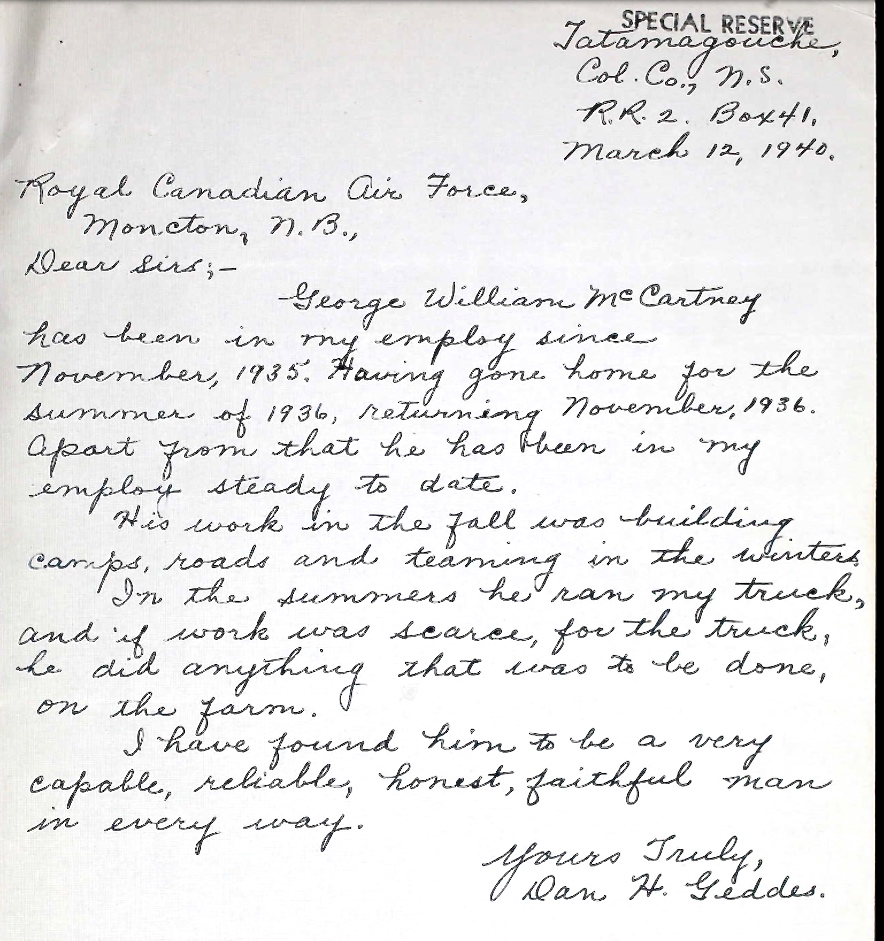 SPECIAL RESERVE
Tatamagouche,
Col. Co., N.S.
R.R. 2. Box 41.
March 12, 1940.
Royal Canadian Air Force,
Moncton, N.B.,
Dear Sirs;-
George William McCartney
has been in my employ since
November, 1935. Having gone home for the
summer of 1936, returning November, 1936.
Apart from that he has been in my
employ steady to date.
His work in the fall was building
camps, roads and teaming in the winters.
In the summers he ran my truck,
and if work was scarce, for the truck,
he did anything that was to be done,
on the farm.
I have found him to be a very
capable, reliable, honest, faithful man
in every way.
Yours Truly,
Dan H. Geddes.